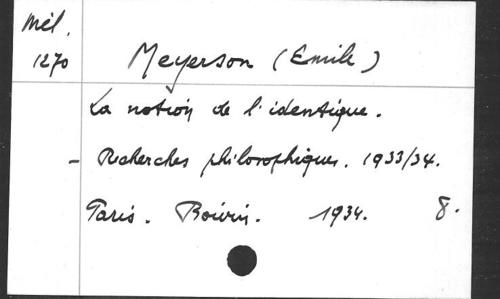 Mél.
1270
Meyerson (Emile)
La notion de l'identique.
- Recherches philosophiques. 1933/34.
Paris. Boivin. 1934. 8.